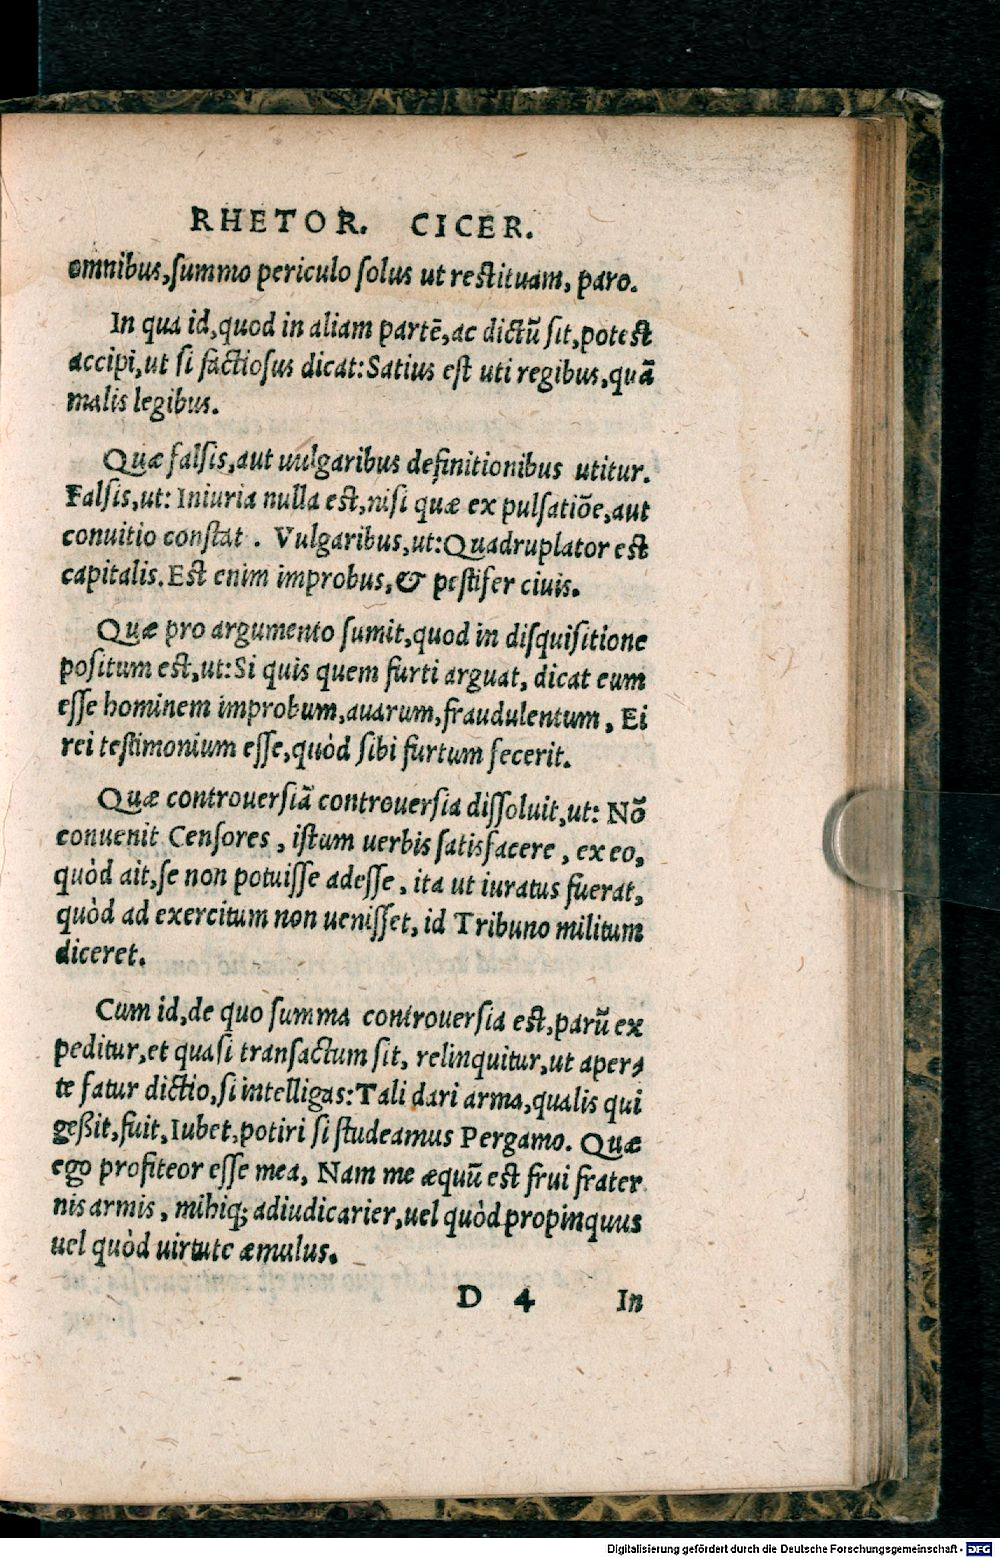 RHETOR. CICER.
omnibus,summo periculo solus ut restituam, paro.
In qua id,quod in aliam partē,ac dictū sit,potest
accipi,ut si factiosus dicat:Satius est uti regibus,quā
malis legibus.
Quæ falsis,aut uulgaribus definitionibus utitur.
Falsis,ut: Iniuria nulla est,nisi quæ ex pulsatiōe,aut
conuitio constat . Vulgaribus,ut:Quadruplator est
capitalis.Est enim improbus,& pestifer ciuis.
Quæ pro argumento sumit,quod in disquisitione
positum est,ut:Si quis quem furti arguat, dicat eum
esse hominem improbum,auarum,fraudulentum, Ei
rei testimonium esse,quòd sibi furtum fecerit.
Quæ controuersiā controuersia dissoluit,ut: Nō
conuenit Censores , istum uerbis satisfacere , ex eo,
quòd ait,se non potuisse adesse , ita ut iuratus fuerat,
quòd ad exercitum non uenisset, id Tribuno militum
diceret.
Cum id,de quo summa controuersia est,parū ex
peditur,et quasi transactum sit, relinquitur,ut aper⸗
te fatur dictio,si intelligas:Tali dari arma,qualis qui
geßit,fuit,Iubet,potiri si studeamus Pergamo. Quæ
ego profiteor esse mea, Nam me æquū est frui frater
nis armis , mihiq; adiudicarier,uel quòd propinquus
uel quòd uirtute æmulus.
D 4 In
Digitalisierung gefördert durch die Deutsche Forschungsgemeinschaft - DFG